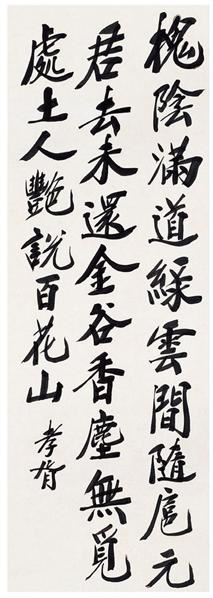 槐陰滿道綵雲間隨扈元
君去未還金谷香塵無覓
處土人艷說百花山 孝胥